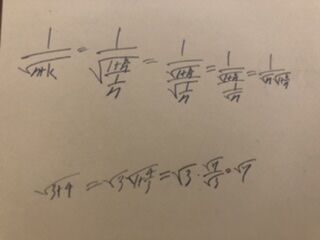 1/√(n+k) = 1/√((1+k/n)/(1/n)) = 1/(√(1+k/n)/√(1/n)) = 1/(√(1+k/n)/(1/√n)) = 1/(√n√(1+k/n))
√(3+4) = √3√(1+4/3) = √3·√7/√3 = √7